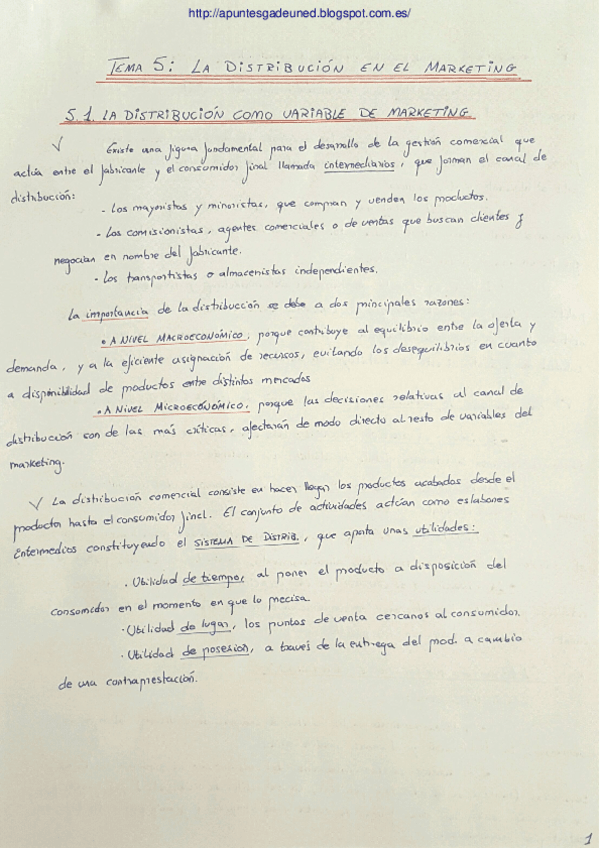 http://apuntesgadeuned.blogspot.com.es/
TEMA 5: LA DISTRIBUCIÓN EN EL MARKETING
5.1. LA DISTRIBUCIÓN COMO VARIABLE DE MARKETING.
√ Existe una figura fundamental para el desarrollo de la gestión comercial que
actúa entre el fabricante y el consumidor final llamada intermediarios, que forman el canal de
distribución:
- Los mayoristas y minoristas, que compran y venden los productos.
- Los comisionistas, agentes comerciales o de ventas que buscan clientes y
negocian en nombre del fabricante.
- Los transportistas o almacenistas independientes.
La importancia de la distribucción se debe a dos principales razones:
• A NIVEL MACROECONÓMICO, porque contribuye al equilibrio entre la oferta y
demanda, y a la eficiente asignación de recursos, evitando los desequilibrios en cuanto
a disponibilidad de productos entre distintos mercados
• A NIVEL MICROECONÓMICO, porque las decisiones relativas al canal de
distribucción son de las más críticas, afectarán de modo directo al resto de variables del
marketing.
√ La distribución comercial consiste en hacer llegar los productos acabados desde el
productor hasta el consumidor final. El conjunto de actividades actúan como eslabones
intermedios constituyendo el SISTEMA DE DISTRIB., que aporta unas utilidades:
· Utilidad de tiempo, al poner el producto a disposición del
consumidor en el momento en que lo precisa.
· Utilidad de lugar, los puntos de venta cercanos al consumidor.
· Utilidad de posesión, a través de la entrega del prod. a cambio
de una contraprestación.
1